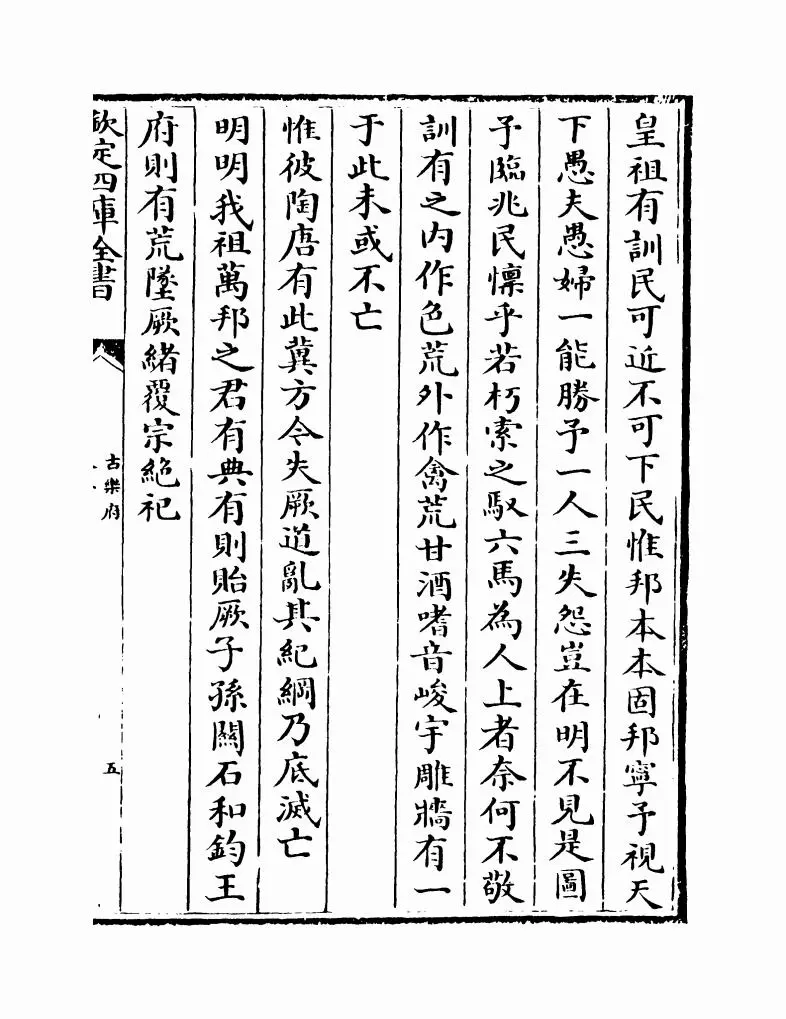 皇祖有訓民可近不可下民惟邦本本固邦寧予視天
下愚夫愚婦一能勝予一人三失怨豈在明不見是圖
予臨兆民懍乎若朽索之馭六馬為人上者奈何不敬
訓有之内作色荒外作禽荒甘酒嗜音峻宇雕牆有一
于此未或不亡
惟彼陶唐有此冀方今失厥道亂其紀綱乃底滅亡
明明我祖萬邦之君有典有則貽厥子孫關石和鈞王
府則有荒墜厥緒覆宗絶祀
欽定四庫全書
古樂府
五